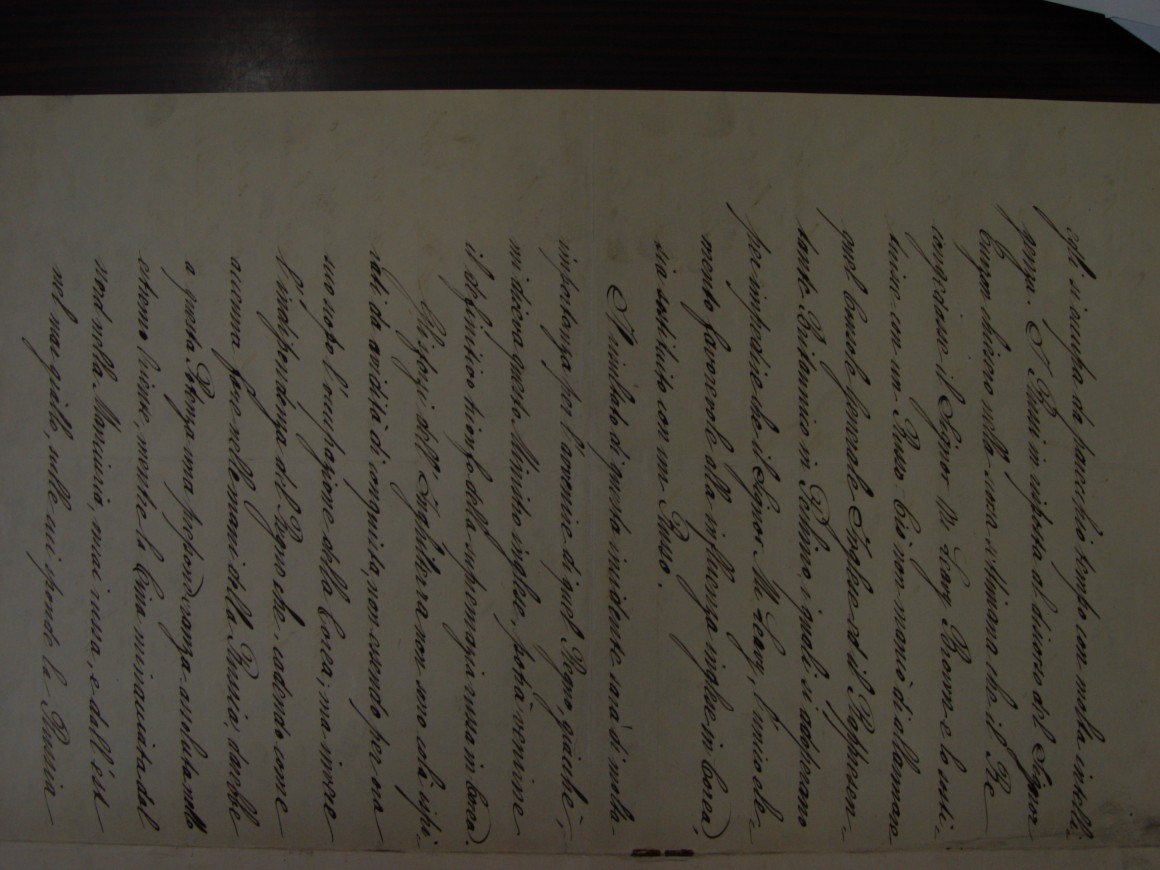 egli si occupa da parecchio tempo con molta intelli-
genza. I Russi in risposta al diuorzo del Signor
Eugen chiesero nella scorsa settimana che il Re
congedasse il Signor Mc Leavy Brown e lo sosti-
tuisse con un Russo. Ciò non mancò di allarmare
quel Console Generale Inglese ed il Rappresen-
tante Britannico in Pechino, i quali si adoprano
per impedire che il Signor Mc Leavy, l'unico ele-
mento favorevole alla influenza inglese in Corea,
sia sostituito con un Russo.
Il risultato di questo incidente sarà di molta
importanza per l'avvenire di quel Regno, giacchè,
mi diceva questo Ministro inglese, potrà venirne
il definitivo trionfo della supremazia russa in Corea.
Gli sforzi dell'Inghilterra non sono colà ispi-
rati da avidità di conquista, non essendo per ora
suo scopo l'occupazione della Corea; ma invece
l'indipendenza del Regno che, cadendo come
accenna fare nelle mani della Russia, darebbe
a questa Potenza una preponderanza assoluta nello
estremo oriente, mentre la Cina minacciata dal
nord nella Manciuria, quasi russa, e dall'est
nel mar giallo, sulle cui sponde la Russia